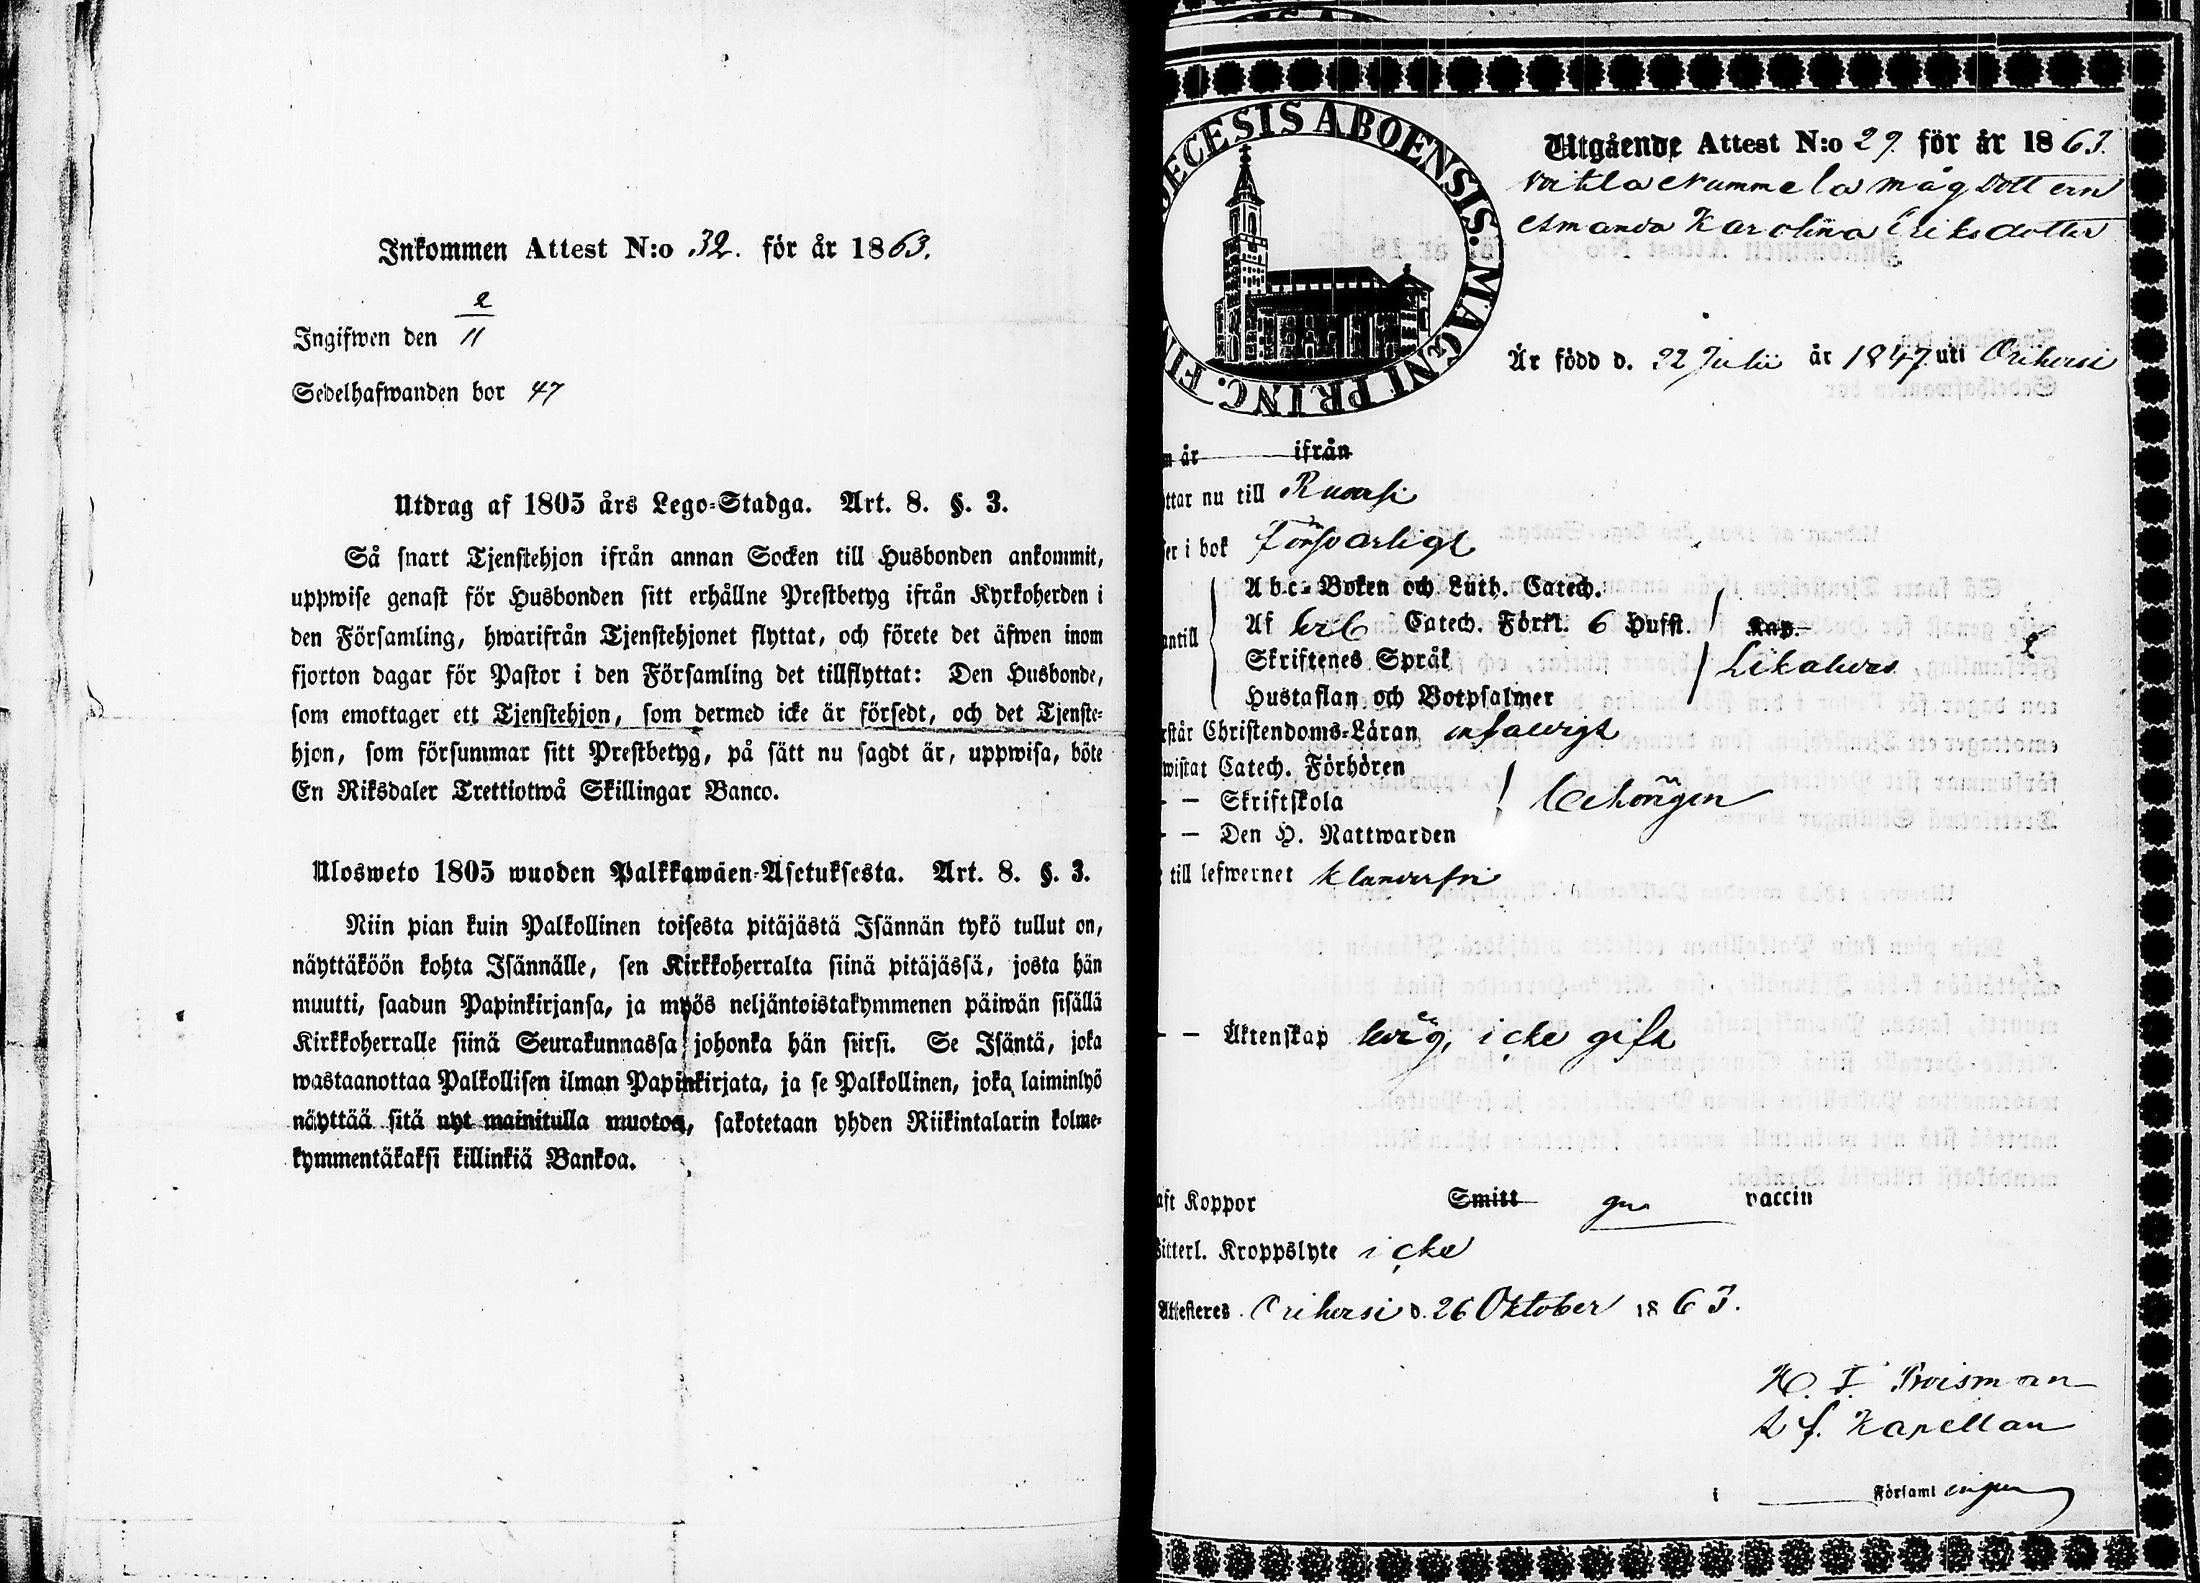 Inkommen Attest N:o 32. för år 1863.
Ingifwen den 2/11
Sedelhafwanden bor 47
Utdrag af 1805 års Lego-Stadga. Art. 8. §. 3.
Så snart Tjenstehjon ifrån annan Socken till Husbonden ankommit,
uppwise genast för Husbonden sitt erhållne Prestbetyg ifrån Kyrkoherden i
den Församling, hwarifrån Tjenstehjonet flyttat, och förete det äfwen inom
fjorton dagar för Pastor i den Församling det tillflyttat: Den Husbonde,
som emottager ett Tjenstehjon, som dermed icke är försedt, och det Tjenste-
hjon, som försummar sitt Prestbetyg, på sätt nu sagdt är, uppwisa, böte
En Riksdaler Trettiotwå Skillingar Banco.
Ulosweto 1805 wuoden Palkkawäen-Asetuksesta. Art. 8. §. 3.
Niin pian kuin Palkollinen toisesta pitäjästä Isännän tykö tullut on,
näyttäköön kohta Isännälle, sen Kirkkoherralta siinä pitäjässä, josta hän
muutti, saadun Papinkirjansa, ja myös neljäntoistakymmenen päiwän sisällä
Kirkkoherralle siinä Seurakunnassa johonka hän siirsi. Se Isäntä, joka
wastaanottaa Palkollisen ilman Papinkirjata, ja se Palkollinen, joka laiminlyö
näyttää sitä nyt mainitulla muotoa, sakotetaan yhden Riikintalarin kolme-
kymmentäkaksi killinkiä Bankoa.
DIECESIS ABOENSIS. MAGNI PRINC. FIN
Utgående Attest N:o 29. för år 1863.
Nummela mågdottern
Amanda Karolina Eriksdotter
Är född d. 22 Julii år 1847 uti Oripää
n år ifrån
ttar nu till Ruovsi
ser i bok försvarligt
Abc-Boken och Luth. Catech.
antill Af Catech. Förkl. 6 Hufst. Kap.
Skriftenes Språk Likaledes
Hustaflan och Botpsalmer
rstår Christendoms-Läran enfaldigt
wistat Catech. Förhören
- - Skriftskola behörigen
- - Den H. Nattwarden
till lefwernet klanderfri
- - Äktenskap ledig, icke gift
aft Koppor Smitt gm vaccin
Witterl. Kroppslyte icke
Attesteres Oripää d. 26 Oktober 1863.
H. F. Proisman
t. f. Kapellan
i Församlingen